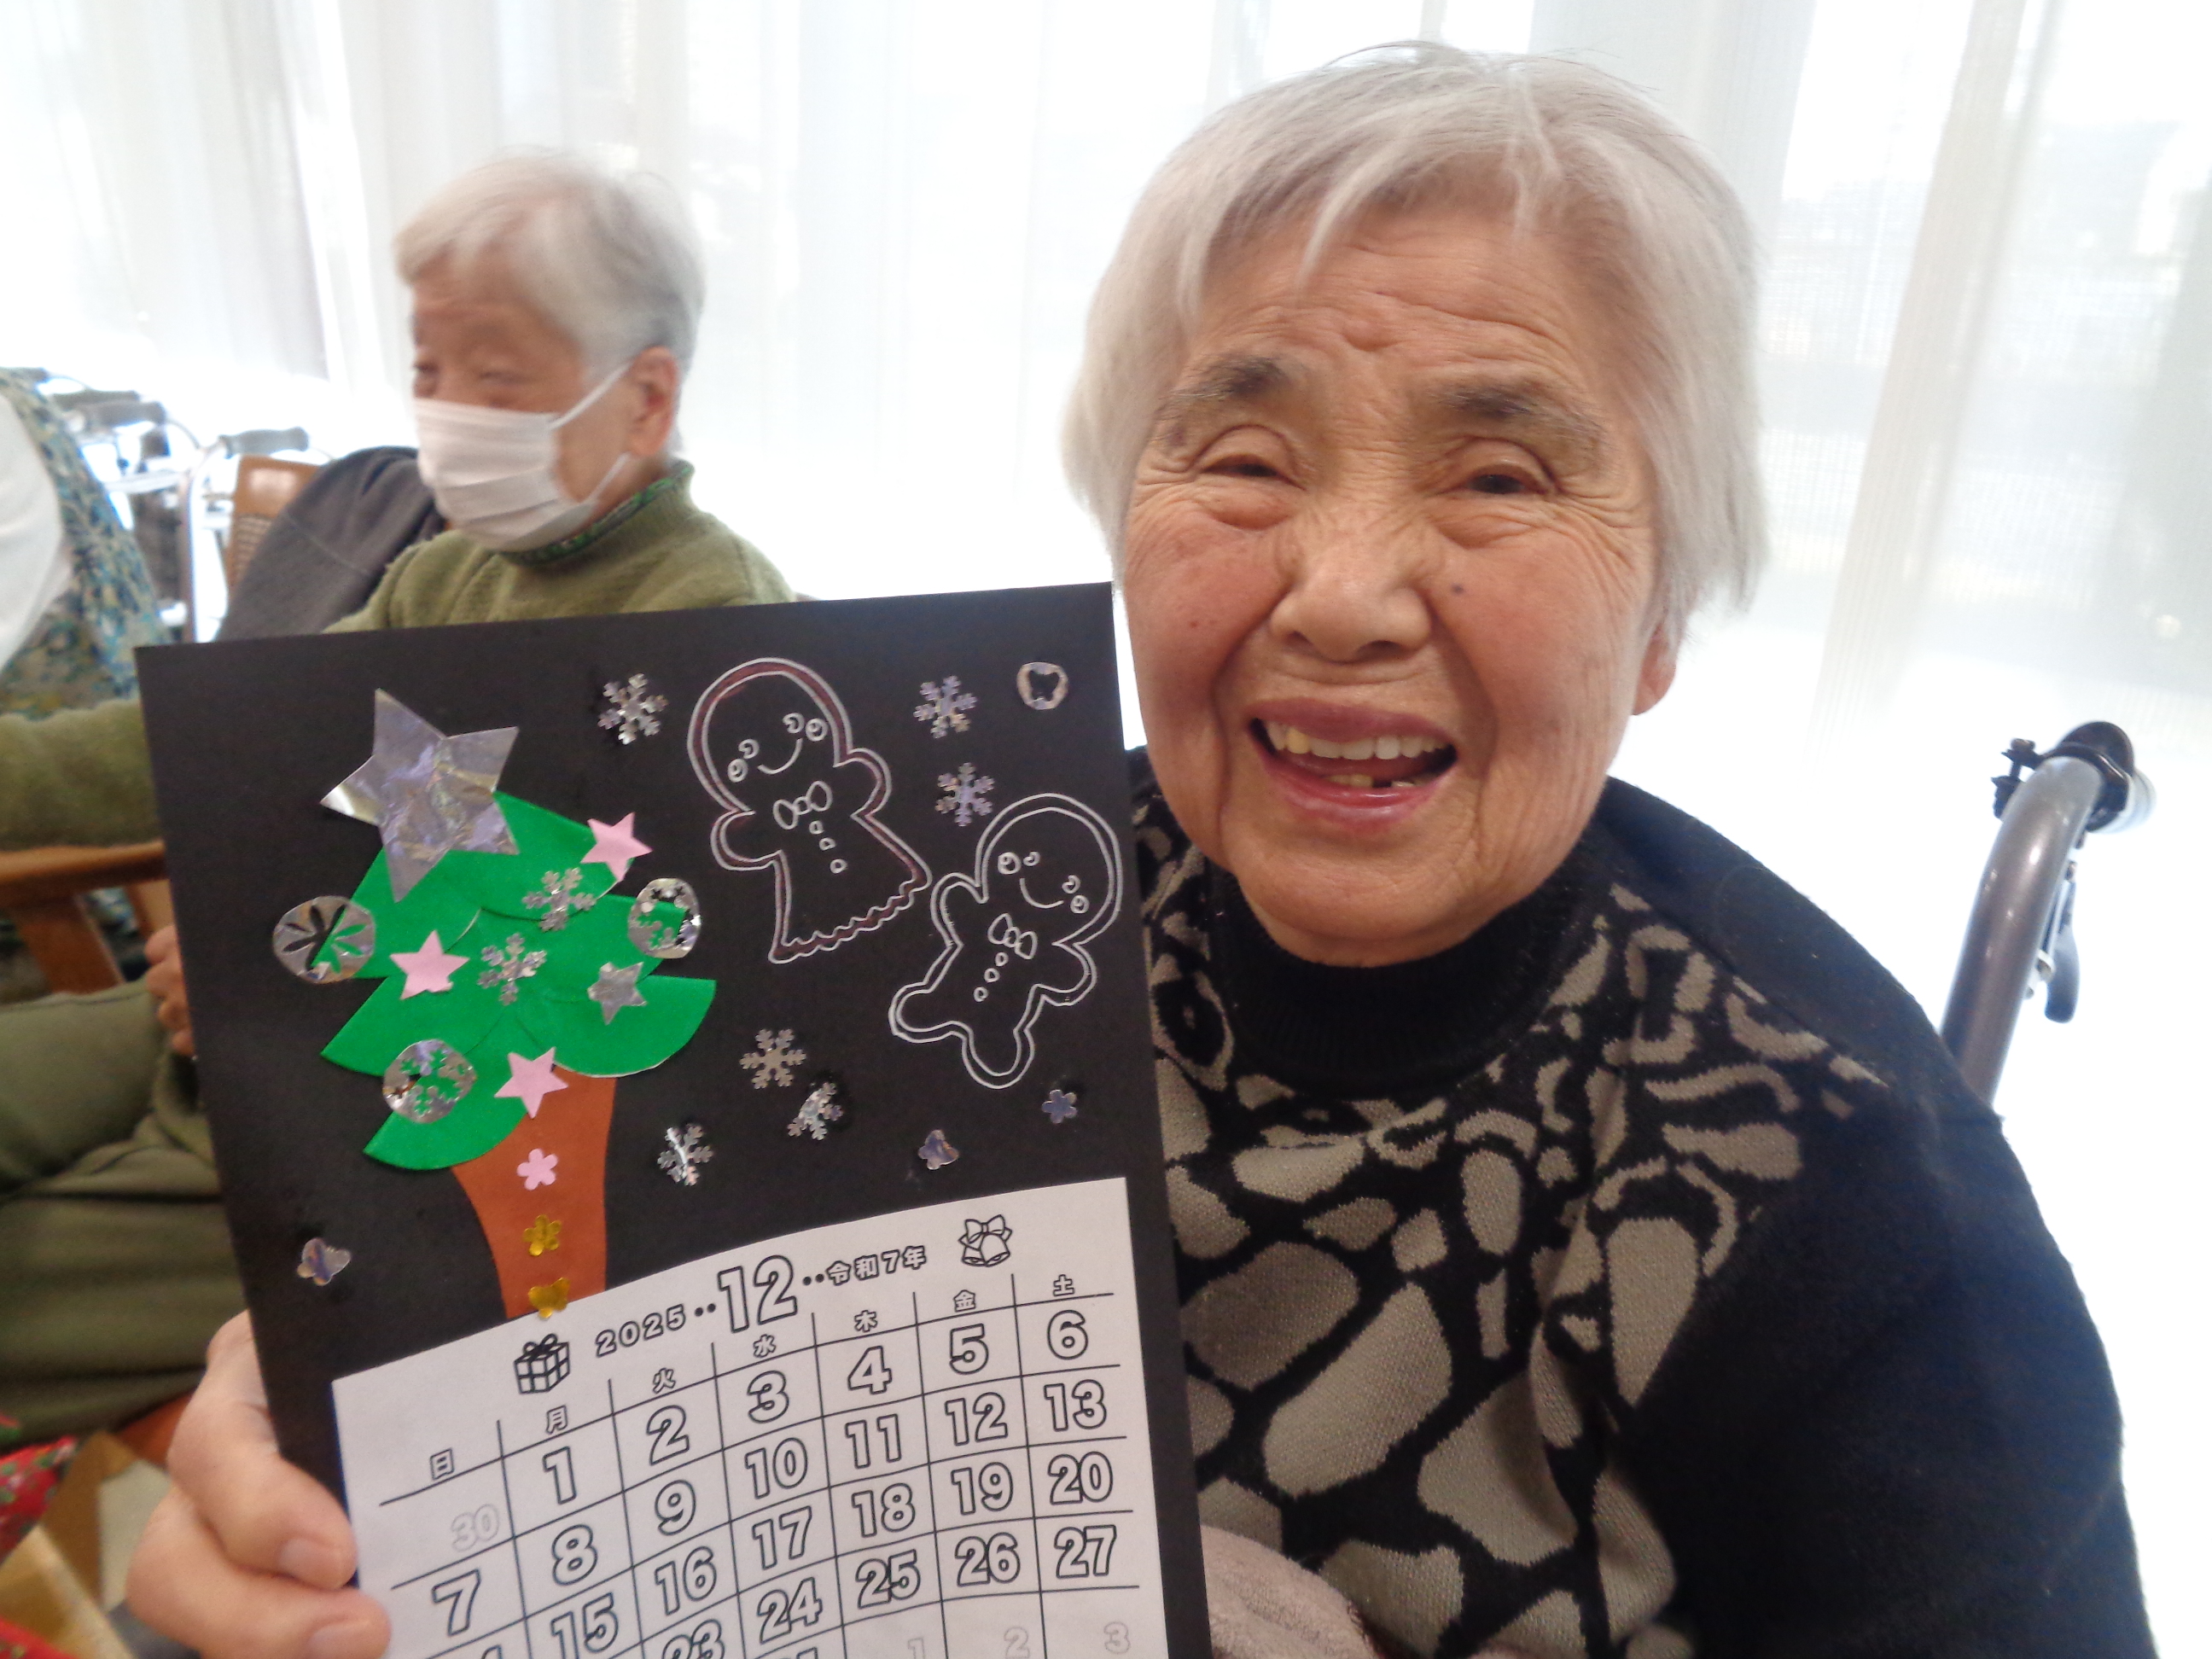 2025••12••令和7年
日 月 火 水 木 金 土
30 1 2 3 4 5 6
7 8 9 10 11 12 13
15 16 17 18 19 20
23 24 25 26 27
1 2 3